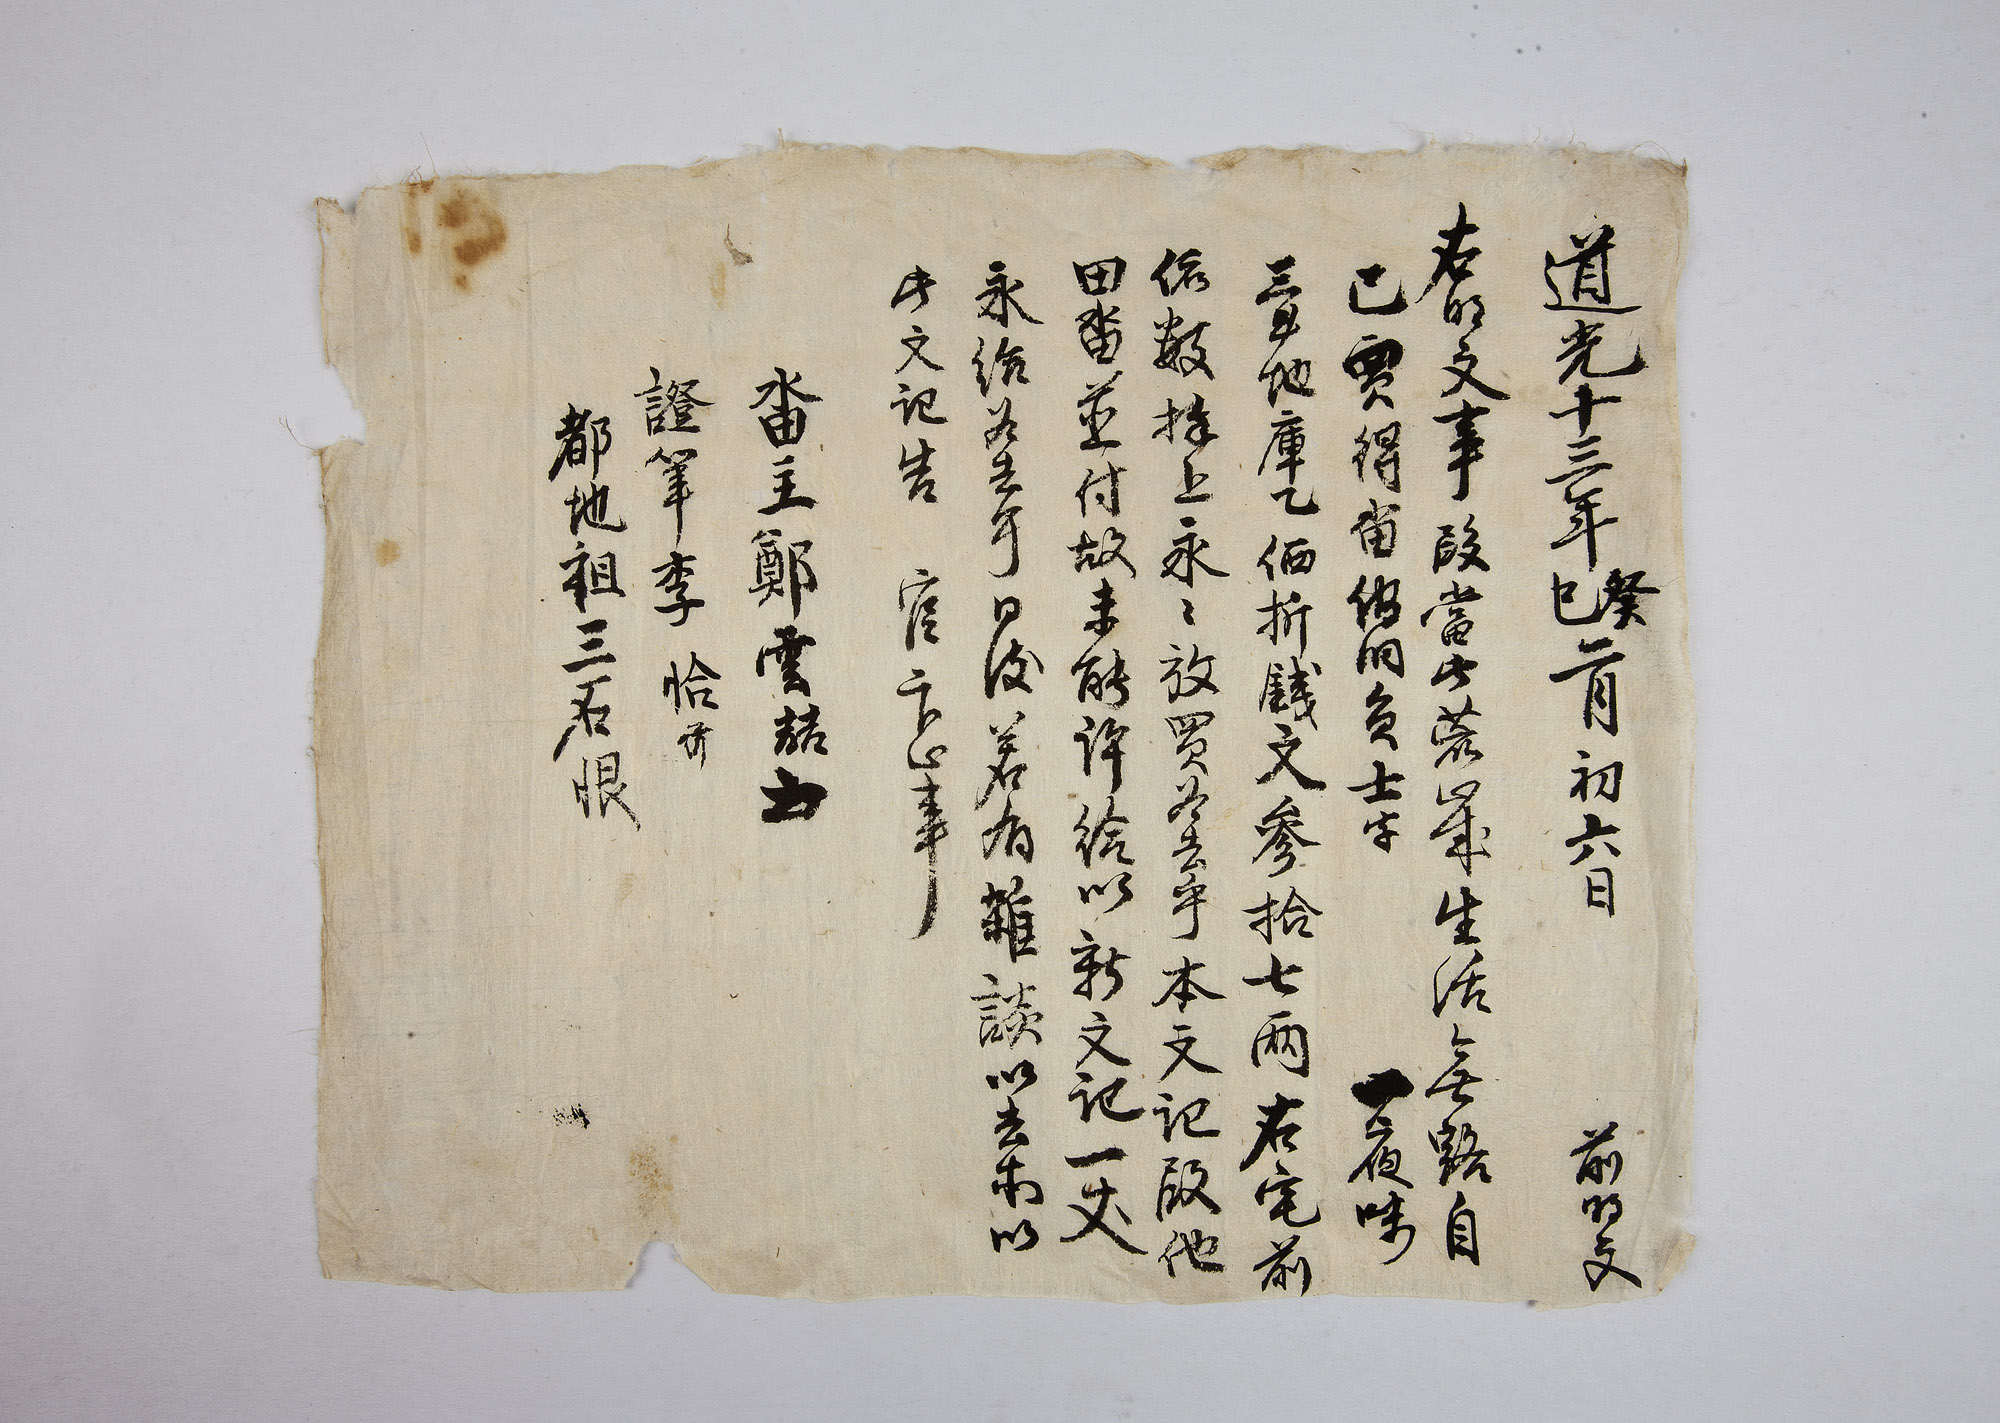 道光十三年癸巳二月初六日 前明文
右明文事段當此荒歲生活無路自
己買得畓伏員士字 夜味
三斗地庫乙価折錢文參拾七兩右宅前
依數捧上永永放買爲去乎本文記段他
田畓並付故未能許給以新文記一丈
永給爲去乎日後若有雜談以去等以
此文記告官卞正事
畓主鄭雲喆
證筆李恰
都地租三石